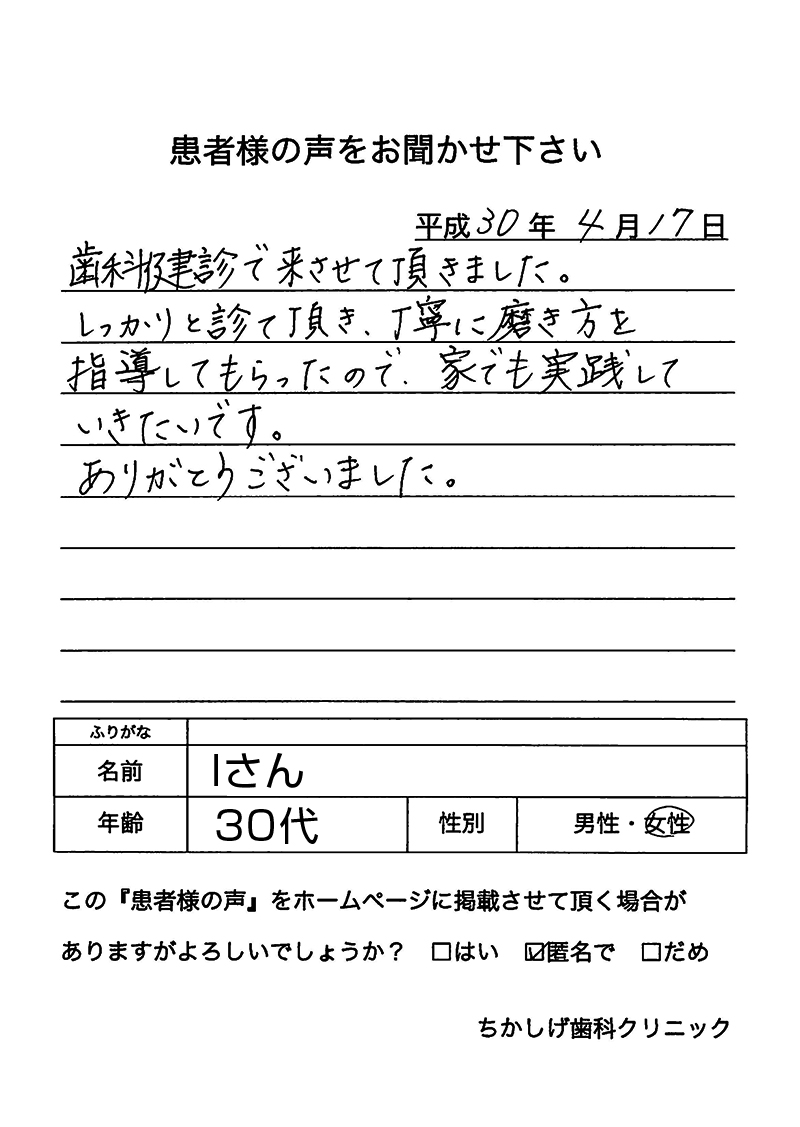 患者様の声をお聞かせ下さい
平成30年 4月17日
歯科健診で来させて頂きました。
しっかりと診て頂き、丁寧に磨き方を
指導してもらったので、家でも実践して
いきたいです。
ありがとうございました。
ふりがな
名前 Iさん
年齢 30代 性別 男性・女性
この『患者様の声』をホームページに掲載させて頂く場合が
ありますがよろしいでしょうか？ □はい ☑匿名で □だめ
ちかしげ歯科クリニック